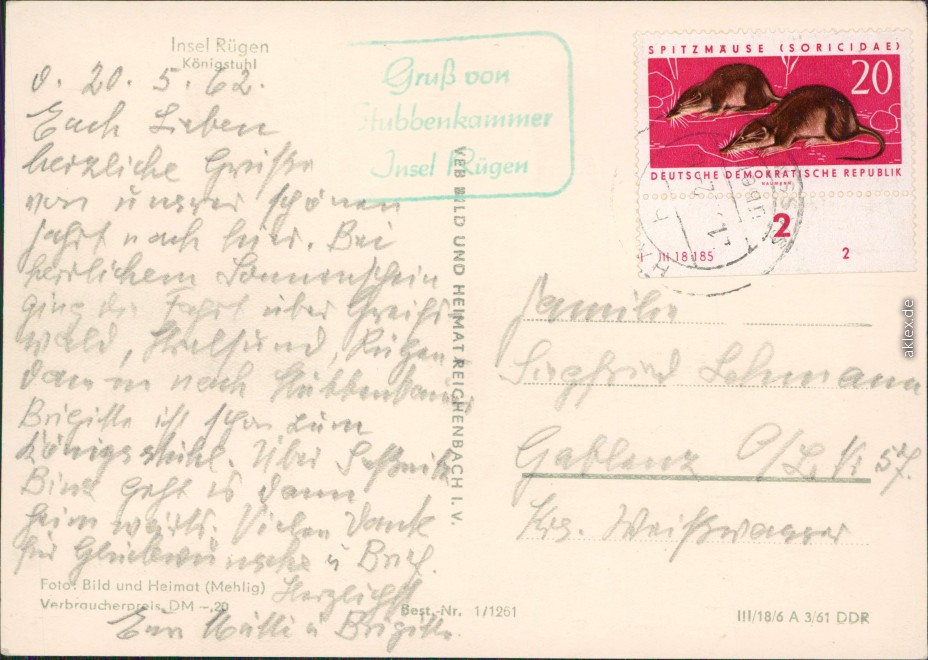 Insel Rügen
Königstuhl
d. 20. 5. 62.
Euch Lieben
herzliche Grüße
von unsrer schönen
Fahrt nach hier. Bei
herrlichem Sonnenschein
ging die Fahrt über Greifs
wald, Stralsund, Rügen
dann nach Stubbenkam
Brigitte ist schon zum
Königsstuhl. Über Saßnitz
Binz geht es dann
heimwärts. Vielen Dank
für Glückwünsche u Brief.
Herzlichst
Eure Mutti u Brigitte.
Foto: Bild und Heimat (Mehlig)
Verbraucherpreis DM –,20
Best.-Nr. 1/1261
VEB BILD UND HEIMAT REICHENBACH I. V.
Gruß von
Stubbenkammer
Insel Rügen
SPITZMÄUSE (SORICIDAE)
20
DEUTSCHE DEMOKRATISCHE REPUBLIK
NAUMANN
2
III 18 185
2
Familie
Siegfried Lehmann
Gablenz O/L. Nr. 57.
Krs. Weißwasser
III/18/6 A 3/61 DDR
aklex.de